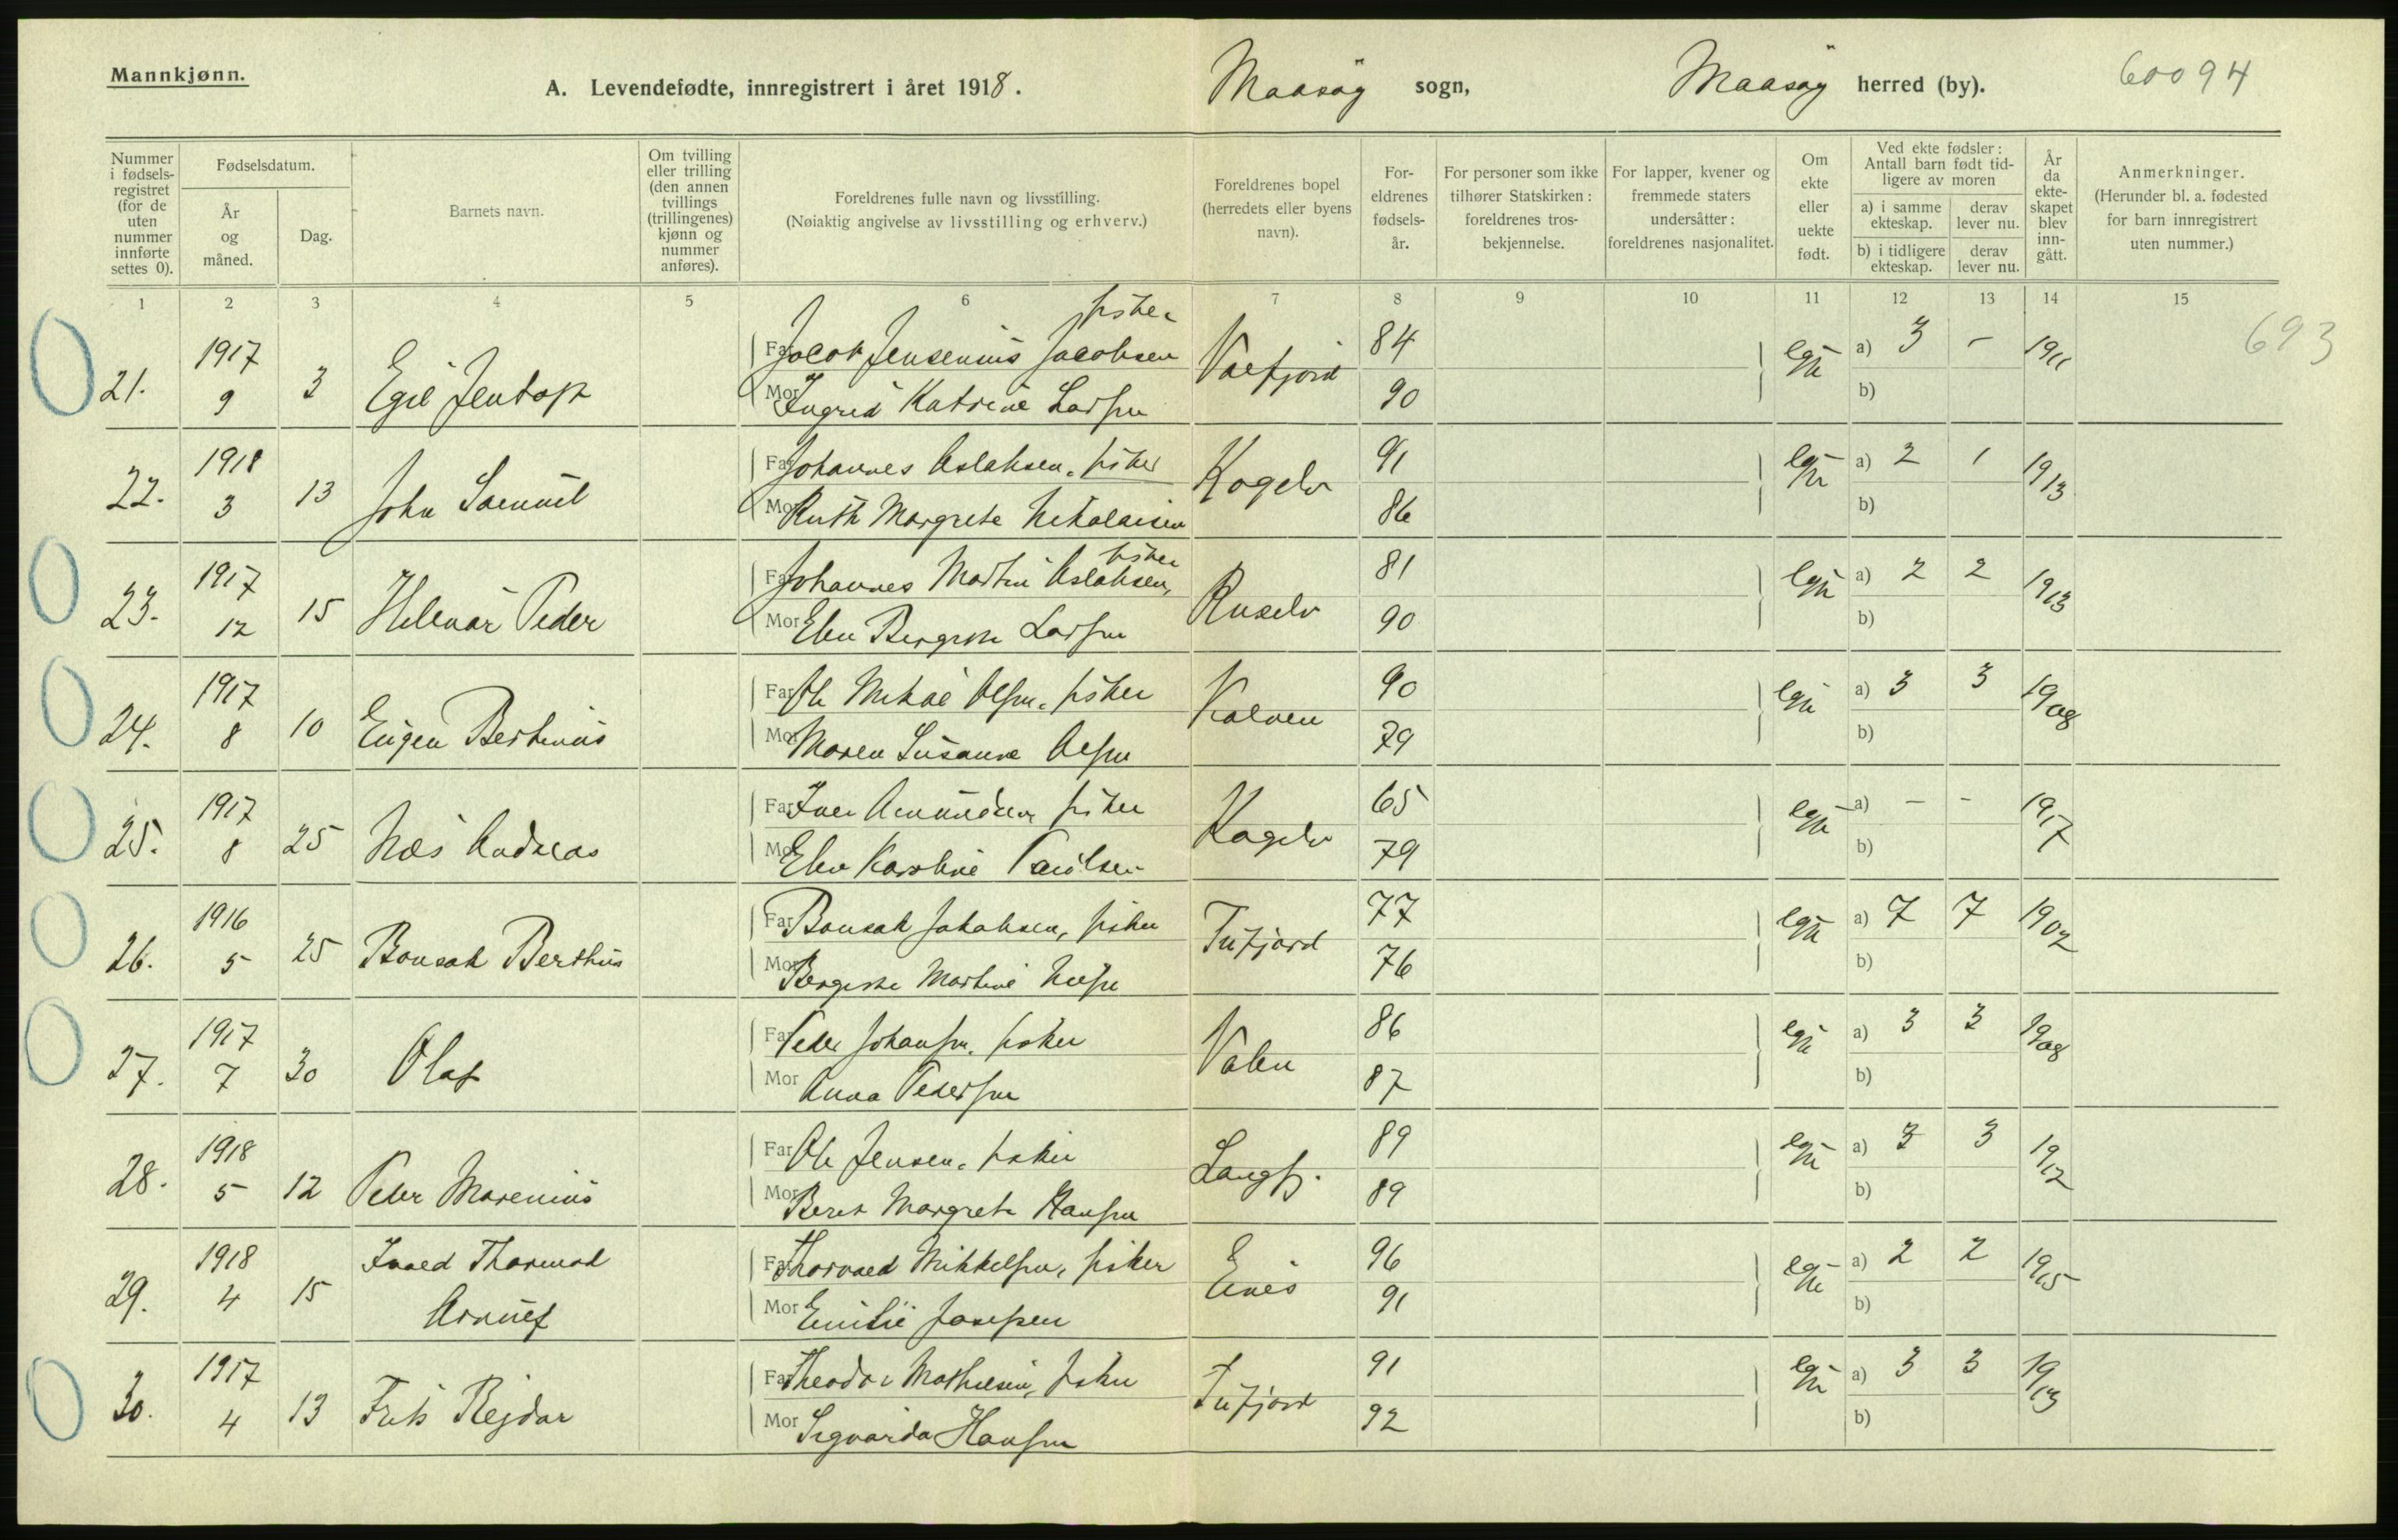 Mannkjønn.
A. Levendefødte, innregistrert i året 1918.
Maasøy sogn, Maasøy herred (by). 60094
Nummer i fødselsregistret (for de uten nummer innførte settes 0).
Fødselsdatum.
År og måned.
Dag.
Barnets navn.
Om tvilling eller trilling (den annen tvillings (trillingenes) kjønn og nummer anføres).
Foreldrenes fulle navn og livsstilling.
(Nøiaktig angivelse av livsstilling og erhverv.)
Foreldrenes bopel (herredets eller byens navn).
Foreldrenes fødselsår.
For personer som ikke tilhører Statskirken: foreldrenes trosbekjennelse.
For lapper, kvener og fremmede staters undersåtter: foreldrenes nasjonalitet.
Om ekte eller uekte født.
Ved ekte fødsler: Antall barn født tidligere av moren
a) i samme ekteskap. derav lever nu.
b) i tidligere ekteskap. derav lever nu.
År da ekteskapet blev inngått.
Anmerkninger.
(Herunder bl. a. fødested for barn innregistrert uten nummer.)
1 2 3 4 5 6 7 8 9 10 11 12 13 14 15
693
21. 1917 9 3 Egil Jentoft
Far Jacob Jensenius Jacobsen fisker 84 a) 3 - 1911
Mor Ingrid Katrine Larsen 90 b)
22. 1918 3 13 John Samuel
Far Johannes Aslaksen, fisker Kogelv 91 a) 2 1 1913
Mor Ruth Margrete Nikolaisen 86 b)
23. 1917 12 15 Hilmar Peder
Far Johannes Martin Aslaksen, fisker Ruselv 81 a) 2 2 1913
Mor Elen Bergitte Larsen 90 b)
24. 1917 8 10 Eugen Bertinius
Far Ole Mikal Olsen, fisker Kalven 90 a) 3 3 1908
Mor Maren Susanne Olsen 79 b)
25. 1917 8 25 Nils Andreas
Far Iver Amundsen fisker Kogelv 65 a) - - 1917
Mor Elen Karoline Paulsen 79 b)
26. 1916 5 25 Bonsak Berthus
Far Bonsak Jakobsen, fisker Tufjord 77 a) 7 7 1902
Mor Bergitte Martine 76 b)
27. 1917 7 30 Olaf
Far Peder Johansen, fisker Valen 86 a) 3 3 1908
Mor Anna Pedersen 87 b)
28. 1918 5 12 Peder Marenius
Far Ole Jensen, fisker Langfj. 89 a) 3 3 1912
Mor Beret Margrete Hansen 89 b)
29. 1918 4 15 Thormod
Far Thorvald Mikkelsen, fisker 96 a) 2 2 1915
Mor Emilie Josefsen 91 b)
30. 1917 4 13 Frits Reidar
Far Theodor Mathiesen, fisker Tufjord 91 a) 3 3 1913
Mor Sigvarda Hansen 92 b)